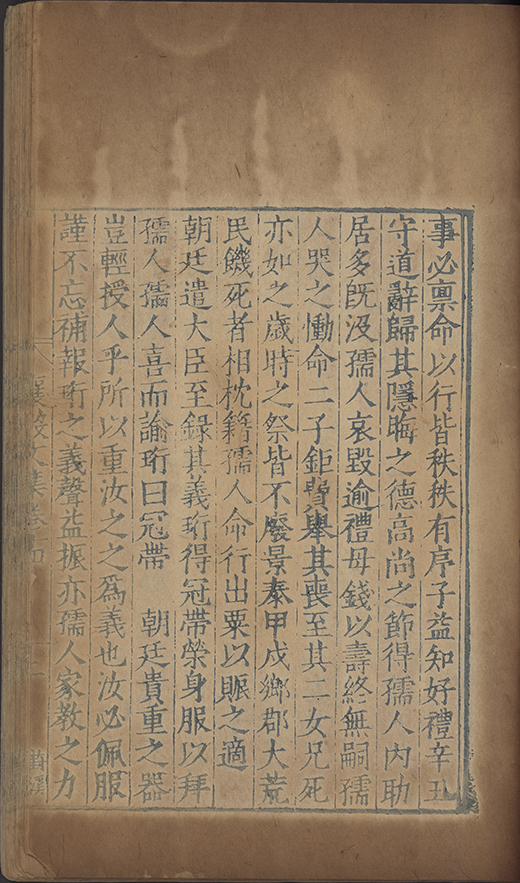 事必禀命以行皆秩秩有序子益知好禮辛丑
守道辭歸其隱晦之德高尚之節得孺人內助
居多旣沒孺人哀毀逾禮母錢以壽終無嗣孺
人哭之慟命二子鉅費舉其喪至其二女兄死
亦如之歲時之祭皆不廢景泰甲戌鄉郡大荒
民饑死者相枕籍孺人命行出粟以賑之適
朝廷遣大臣至錄其義珩得冠帶榮身服以拜
孺人孺人喜而諭珩曰冠帶 朝廷貴重之器
豈輕授人乎所以重汝之之爲義也汝必佩服
謹不忘補報珩之義聲益振亦孺人家教之力